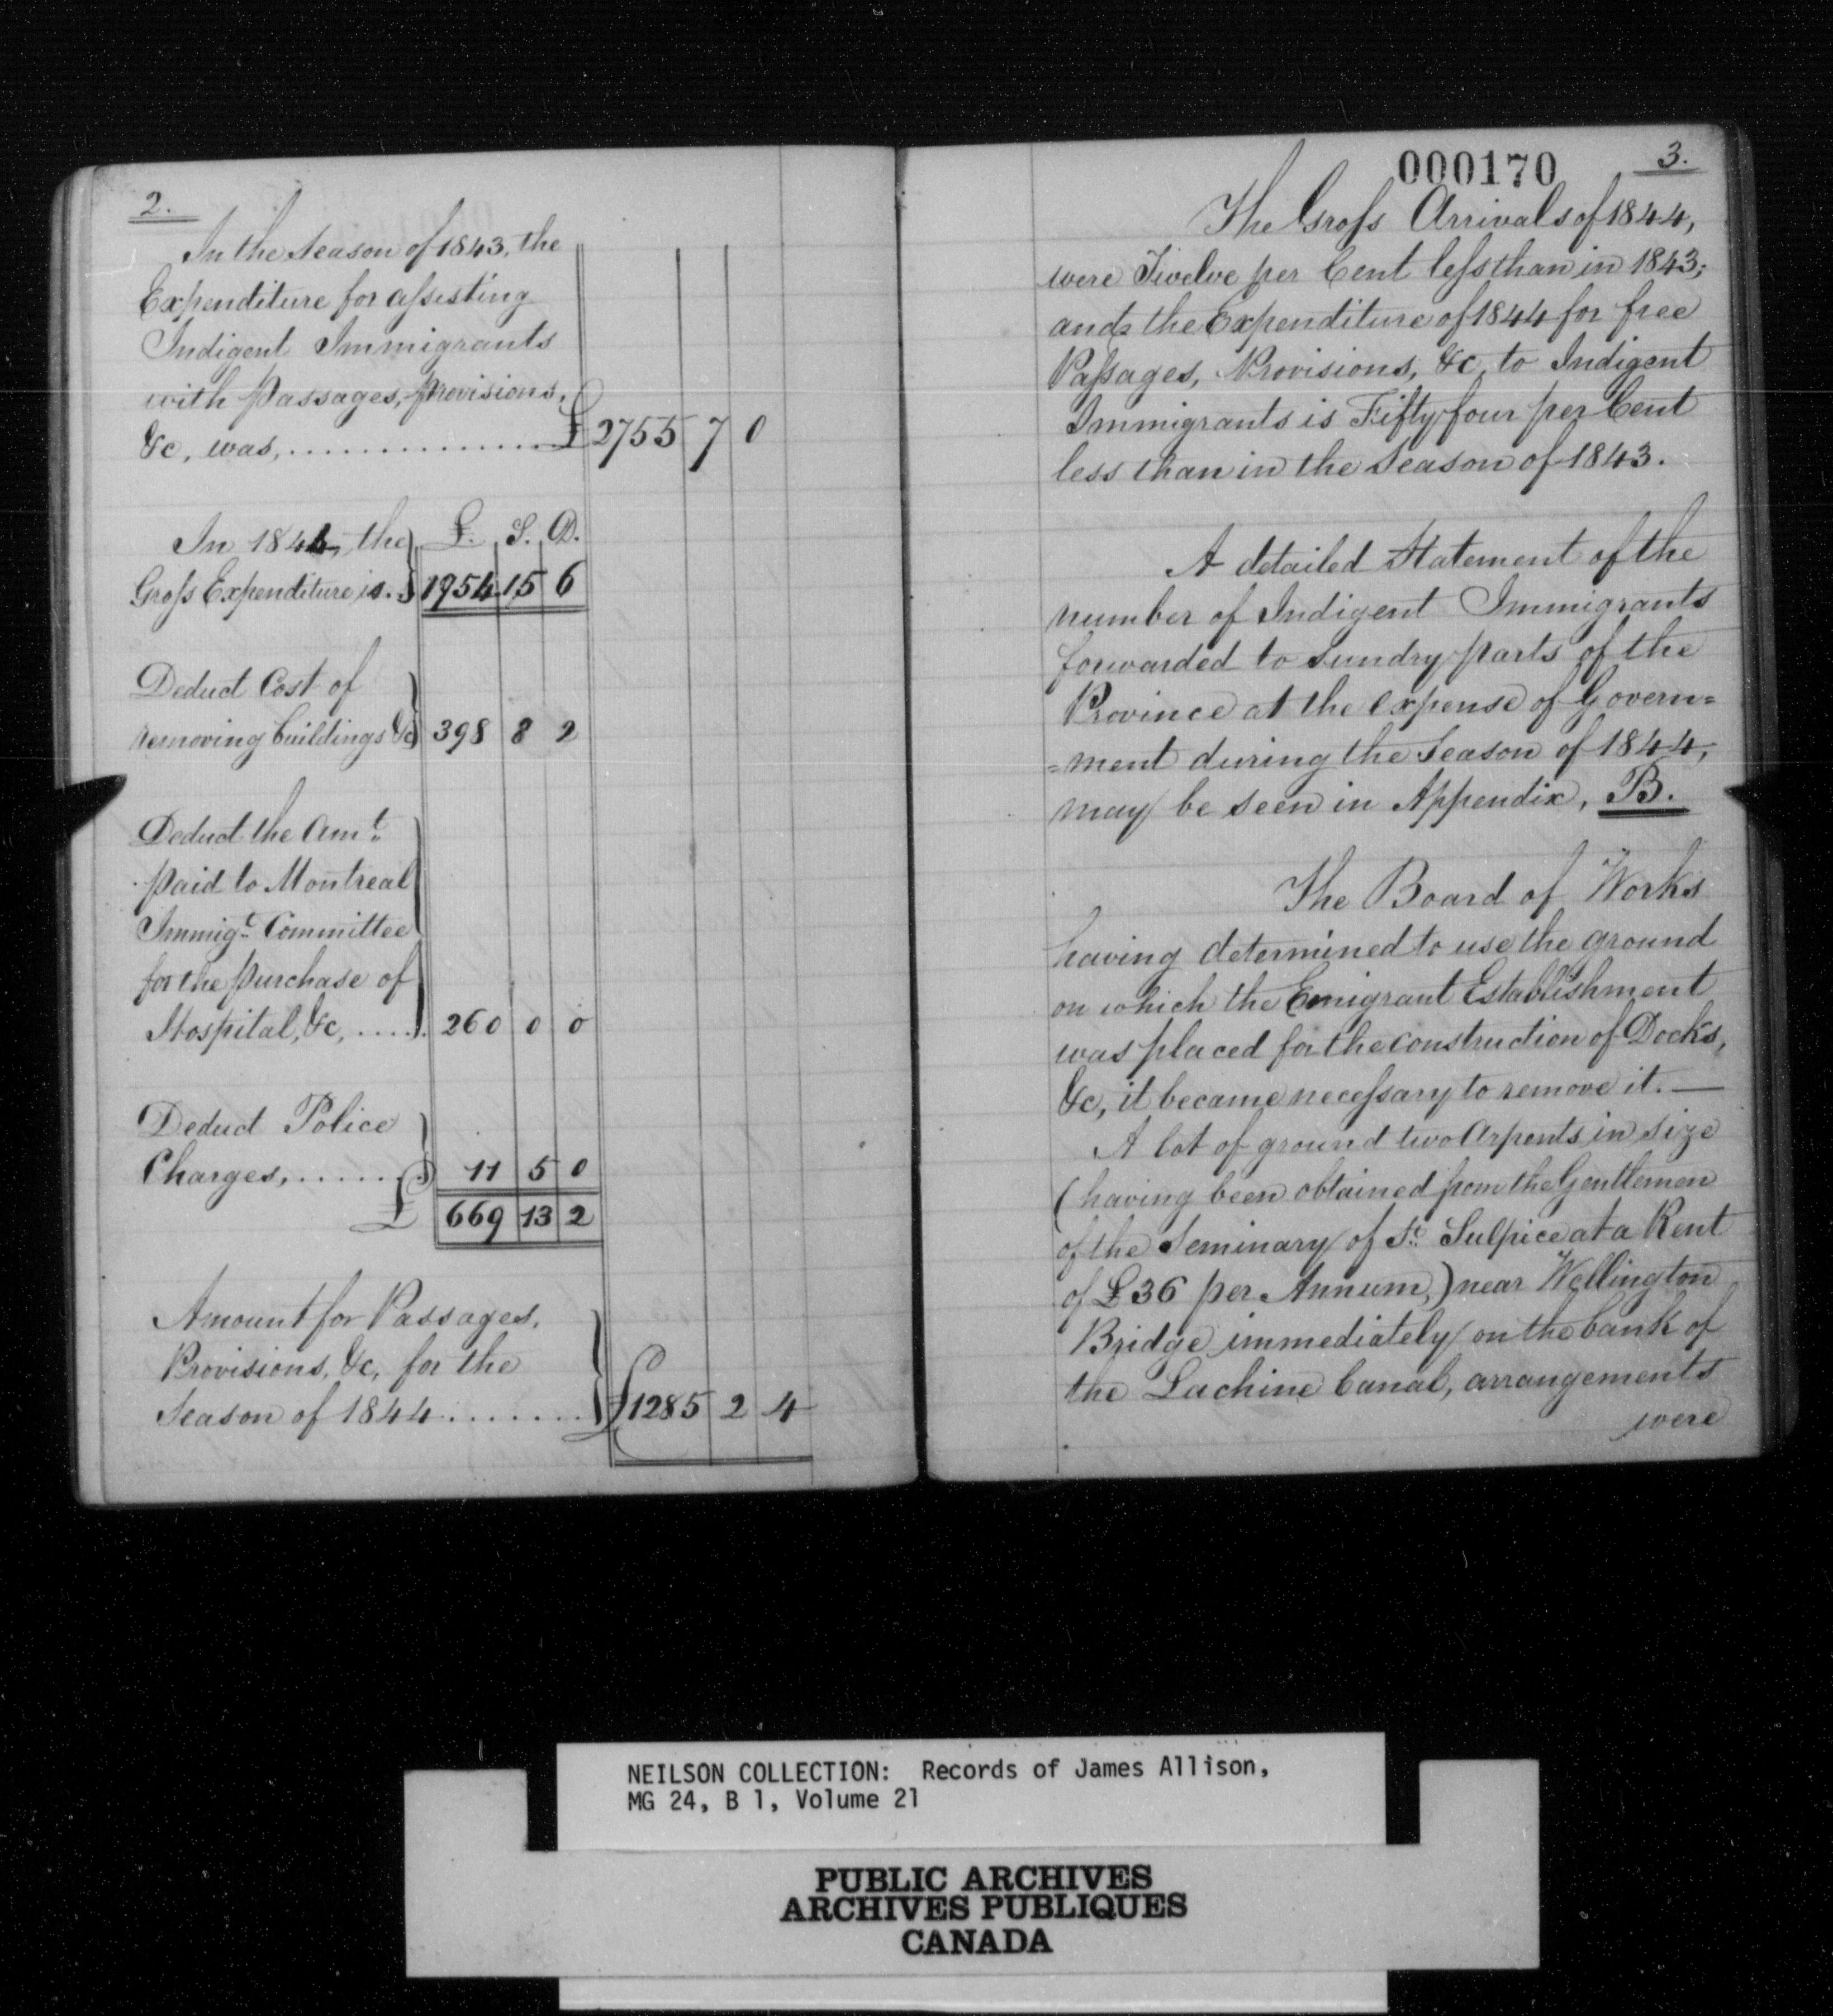 2.
In the Season of 1843, the
Expenditure for assisting
Indigent Immigrants
with passages, provisions,
&c, was, .................. £ 2755 7 0
In 1844, the £. S. D.
Gross Expenditure is. 1954 15 6
Deduct Cost of
removing buildings &c 398 8 2
Deduct the Amt
paid to Montreal
Immigt Committee
for the purchase of
Hospital, &c, ..... 260 0 0
Deduct Police
Charges, ....... 11 5 0
£ 669 13 2
Amount for Passages,
Provisions, &c, for the
Season of 1844 ........ £1285 2 4
000170 3.
The Gross Arrivals of 1844,
were Twelve per Cent less than in 1843;
and the Expenditure of 1844 for free
Passages, Provisions, &c, to Indigent
Immigrants is Fifty four per Cent
less than in the Season of 1843.
A detailed Statement of the
number of Indigent Immigrants
forwarded to sundry parts of the
Province at the expense of Govern=
=ment during the Season of 1844,
may be seen in Appendix, B.
The Board of Works
having determined to use the ground
on which the Emigrant Establishment
was placed for the construction of Docks,
&c, it became necessary to remove it. —
A lot of ground two Arpents in size
(having been obtained from the Gentlemen
of the Seminary of St. Sulpice at a Rent
of £36 per Annum,) near Wellington
Bridge immediately on the bank of
the Lachine Canal, arrangements
were
NEILSON COLLECTION: Records of James Allison,
MG 24, B 1, Volume 21
PUBLIC ARCHIVES
ARCHIVES PUBLIQUES
CANADA